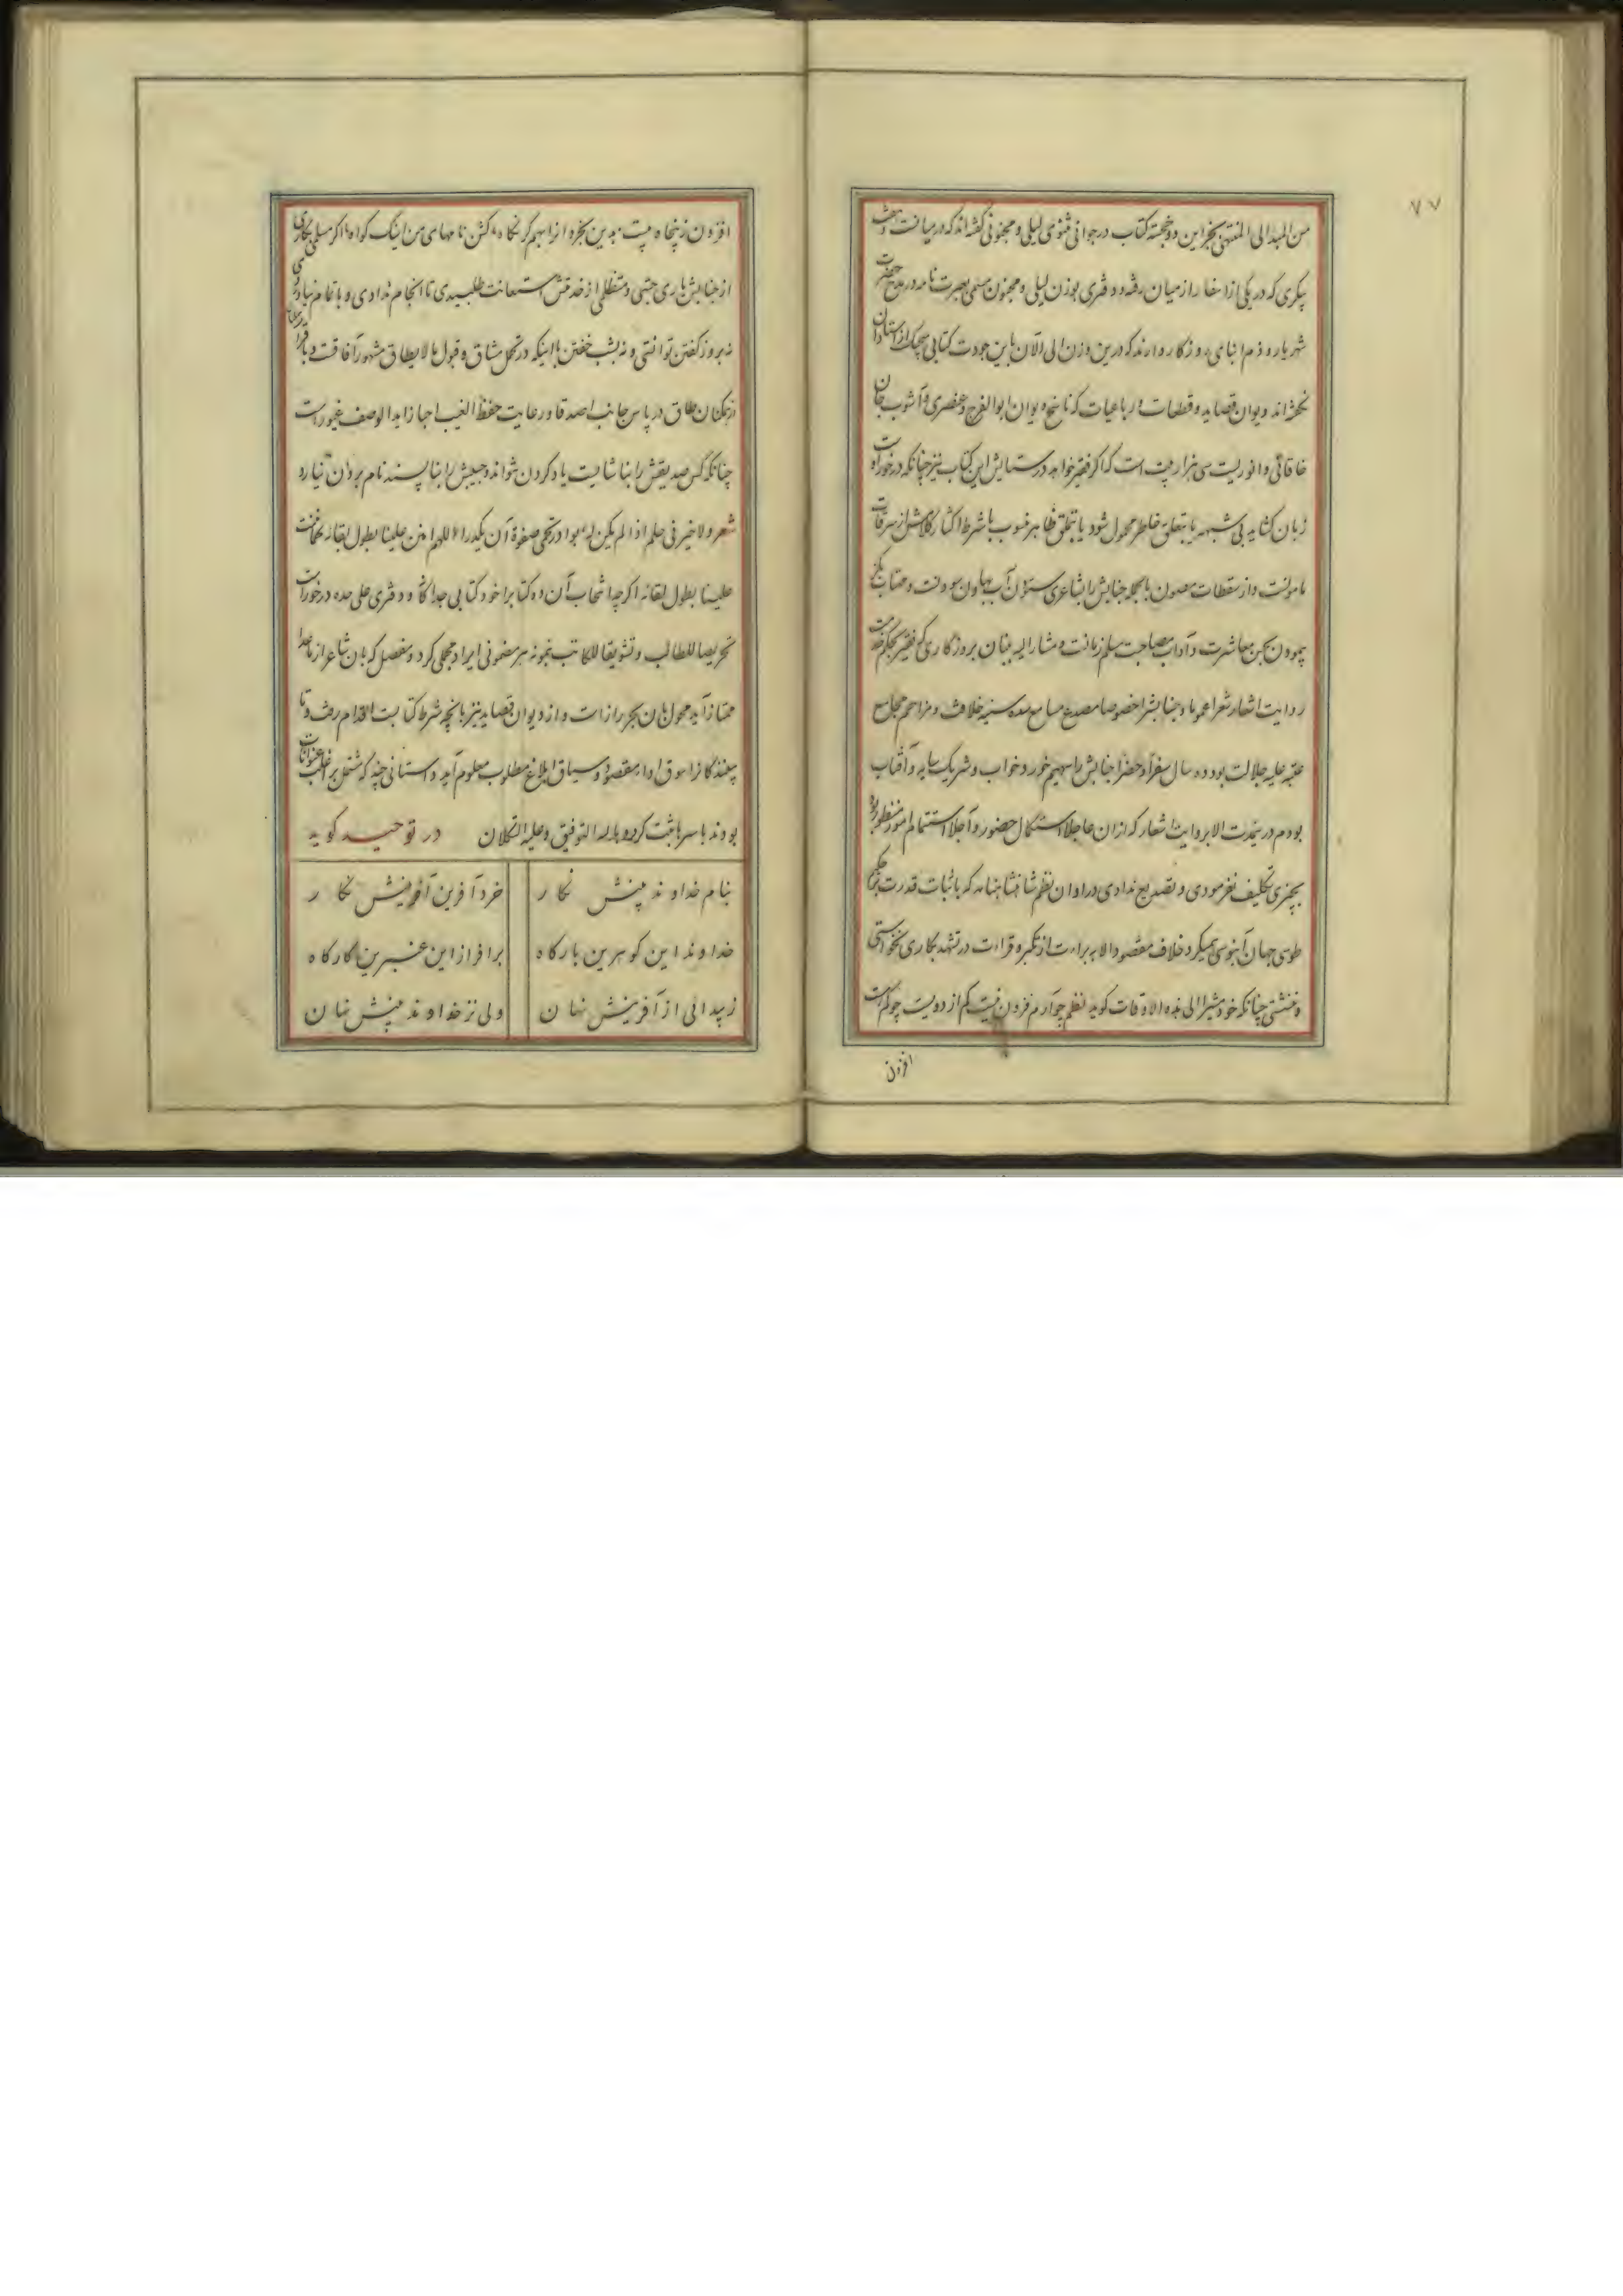 ۷۷
من المبدا الی المنتهی بجز این دو خجسته کتاب در جوانی مثنوی لیلی و مجنونی گفته‌اند که در میانست و
پیکری که در یکی از اخفا راز میان رفته و دفتری بوزن لیلی و مجنون مسمی بعبرت نامه در مدح حضرت
شهریار و ذم ابنای روزگار دارند که درین وزن الی الآن باین جودت کتابی هیچیک از استادان
دیوان قصاید و قطعات و رباعیات که ناسخ دیوان ابوالفرج و عنصری و آشوب جان
خاقانی و انوریست سی هزار بیت است که اگر فقیر خواهد در ستایش این کتاب نیز چنانکه در خور است
زبان کشاید بی شبهه یا بتعلق خاطر محمول شود یا بتملق ظاهر منسوب با شرط اکثار کلامش از سرقات
مامونست و از سقطات مصون بالجمله جنابش را بشاعری ستودن آب بهاون سودنست و مهتاب بگز
پیمودن حسن معاشرت و آداب مصاحبت مسلم زمانست و مشارالیه بنان بروزگاری که فقیر بحکم خدمت
روایت اشعار شعرا عموما و جنابش را خصوصا مصدع مسامع سده سنیه خلافت و مزاحم مجامع
عتبه علیه جلالت بود ده سال سفرا و حضرا جنابش را سهیم خور و خواب و شریک سایه و آفتاب
بودم درین مدت الا بروایت اشعار که ازان عاجلا استکمال حضور و آجلا استتمام امور منظور بود
بچیزی تکلیف نفرمودی و تصدیع ندادی در اوان نظم شاهنشاهنامه که باثبات قدرت
طوسی جهان آبنوسی میکرد خلاف مقصود الا به براءت از تکبر و قراءت در تشهد بکاری نخواستی
چنانکه خود مشیرا الی هذه الاوقات گوید نظم فزون نیست کم از دویست
افزون
افزون ز پنجاه بیت بدین پنجره از اسیم کر نگاه کش نامهای من اینک گواه اگر مسلمی بکاری
از جنابش یاری جستی و متظلمی از خدمتش استعانت طلبیدی تا انجام ندادی و باتمام
نه بروز گفتن توانستی و نه بشب خفتن با اینکه در تحمل مشاق و قبول مالا یطاق مشهور آفاقست و با
همکنان طاق در پاس جانب اصدقا و رعایت حفظ الغیب احبا زاید الوصف غیور است
چنانکه کس صدیقش را بناشایست یاد کردن نتواند و حبیبش را بناپسند نام بردن نیارد
شعر ولا خیر فی حلم اذا لم یکن له بوادر تحمی صفوه ان یکدرا اللهم امنن علینا بطول بقائه کما مننت
علینا بطول لقائه اگرچه انتخاب آن دو کتاب را خود کتابی جداگانه و دفتری علی حده در خور است
تحریصا للطالب و تشویقا للکاتب نمونه هر مضمونی ایراد مجملی کرد و مفصل که بان شاعر از ماعدا
ممتاز آید محول بان بحر راز است و از دیوان قصاید نیز بانچه شرط کتابت اقدام رفت و تا
بینندگان را سوق ادا و مقصود و سیاق ابلاغ مطلوب معلوم آید داستانی چند که مشتمل بر اغلب عنوانات
بودند باسرها ثبت کرد و بالله التوفیق و علیه التکلان در توحید گوید
بنام خداوند بینش نگار خرد آفرین آفرینش نگار
خداوند این گوهرین بارگاه برافراز این عنبرین کارگاه
ز پیدائی از آفرینش نهان ولی نز خداوند بینش نهان